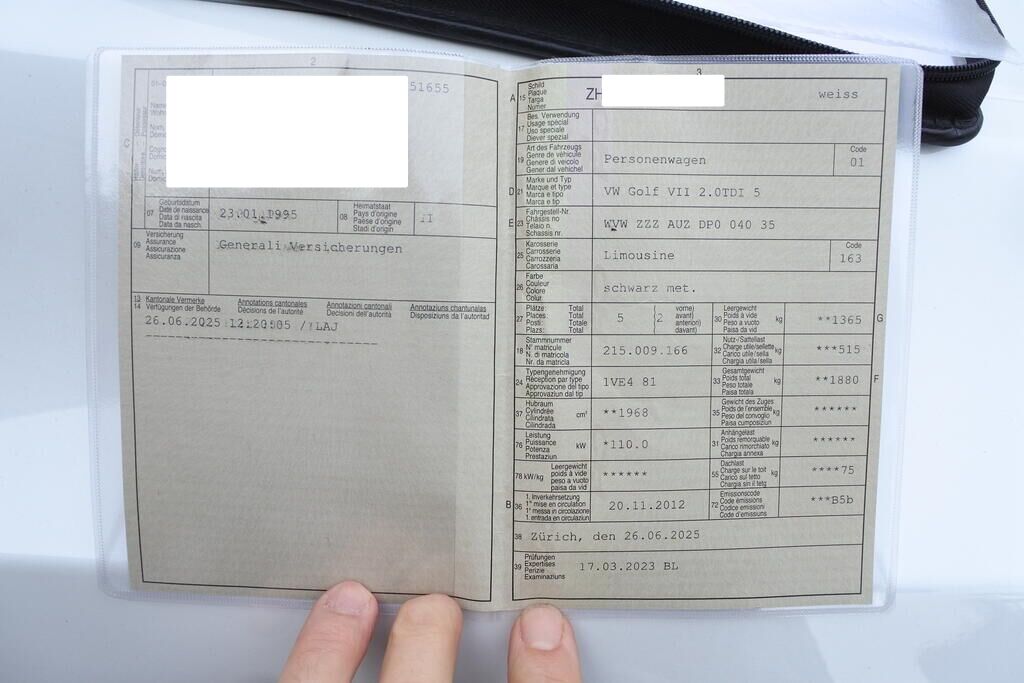 2
51655
07 Geburtsdatum
Date de naissance
Data di nascita
Data da nasch.
23.01.1995
08 Heimatstaat
Pays d'origine
Paese d'origine
Stadi d'origin
II
09 Versicherung
Assurance
Assicurazione
Assicuranza
Generali Versicherungen
13 Kantonale Vermerke Annotations cantonales Annotazioni cantonali Annotaziuns chantunalas
14 Verfügungen der Behörde Décisions de l'autorité Decisioni dell'autorità Disposiziuns da l'autoritad
26.06.2025 12:20:05 /ILAJ
3
A 15 Schild
Plaque
Targa
Numer
ZH
weiss
17 Bes. Verwendung
Usage spécial
Uso speciale
Diever spezial
19 Art des Fahrzeugs
Genre de véhicule
Genere di veicolo
Gener dal vehichel
Personenwagen
Code
01
D 21 Marke und Typ
Marque et type
Marca e tipo
Marca e tip
VW Golf VII 2.0TDI 5
E 23 Fahrgestell-Nr.
Châssis no
Telaio n.
Schassis nr.
WVW ZZZ AUZ DP0 040 35
25 Karosserie
Carrosserie
Carrozzeria
Carossaria
Limousine
Code
163
26 Farbe
Couleur
Colore
Colur
schwarz met.
27 Plätze: Total
Places: Total
Posti: Totale
Plazs: Total
5 (2 vorne)
avant)
anteriori)
davant)
30 Leergewicht
Poids à vide
Peso a vuoto
Paisa da vid
kg
**1365
G
18 Stammnummer
N° matricule
N. di matricola
Nr. da matricla
215.009.166
32 Nutz-/Sattellast
Charge utile/sellette
Carico utile/sella
Chargia utila/sella
kg
***515
24 Typengenehmigung
Réception par type
Approvazione del tipo
Approvaziun dal tip
1VE4 81
33 Gesamtgewicht
Poids total
Peso totale
Paisa totala
kg
**1880
F
37 Hubraum
Cylindrée
Cilindrata
Cilindrada
cm³
**1968
35 Gewicht des Zuges
Poids de l'ensemble
Peso del convoglio
Paisa cumposiziun
kg
******
76 Leistung
Puissance
Potenza
Prestaziun
kW
*110.0
31 Anhängelast
Poids remorquable
Carico rimorchiato
Chargia annexa
kg
******
78 kW/kg Leergewicht
poids à vide
peso a vuoto
paisa da vid
******
55 Dachlast
Charge sur le toit
Carico sul tetto
Chargia sin il tetg
kg
****75
B 36 1. Inverkehrsetzung
1re mise en circulation
1a messa in circolazione
1. entrada en circulaziun
20.11.2012
72 Emissionscode
Code émissions
Codice emissioni
Code d'emissiuns
***B5b
38 Zürich, den 26.06.2025
39 Prüfungen
Expertises
Perizie
Examinaziuns
17.03.2023 BL